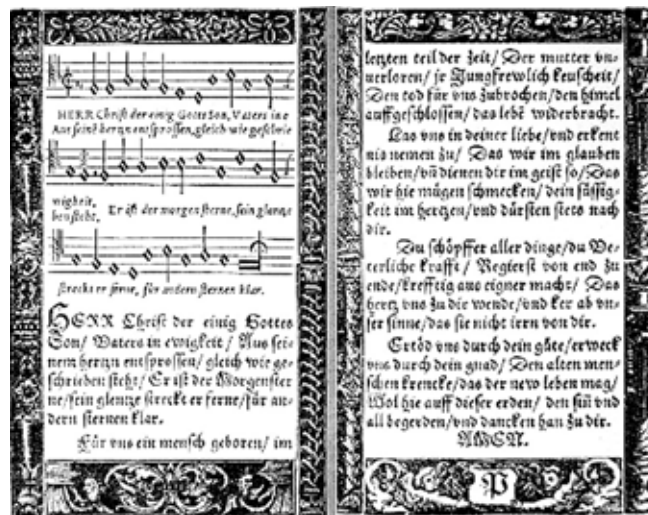 HERR Christ der einig Gottes Son, Vaters in e
Aus seinē hertzn entsprossen, gleich wie geschrie
wigkeit,
ben steht,
Er ist der morgen sterne, sein glentze
streckt er ferne, für andern sternen klar.
HERR Christ der einig Gottes
Son/ Vaters in ewigkeit/ Aus sei-
nem hertzn entsprossen/ gleich wie ge-
schrieben steht/ Er ist der Morgenster
ne/ sein glentze streckt er ferne/ für an-
dern sternen klar.
Für vns ein mensch geboren/ im
letzten teil der zeit/ Der mutter vn-
uerloren/ jr Jungfrewlich keuscheit/
Den tod für vns zubrochen/ den himel
auffgeschlossen/ das lebē widerbracht.
Las vns in deiner liebe/ vnd erkent
nis nemen zu/ Das wir im glauben
bleiben/ vn̄ dienen dir im geist so/ Das
wir hie mügen schmecken/ dein süssig-
keit im hertzen/ vnd dürsten stets nach
dir.
Du schöpffer aller dinge/ du Ve-
terliche krafft/ Regierst von end zu
ende/ krefftig aus eigner macht/ Das
hertz vns zu dir wende/ vnd ker ab vn-
ser sinne/ das sie nicht irrn von dir.
Ertöd vns durch dein güte/ erweck
vns durch dein gnad/ Den alten men-
schen krencke/ das der new leben mag/
Wol hie auff dieser erden/ den sin̄ vnd
all begerden/ vnd dancken han zu dir.
AMEN.
P